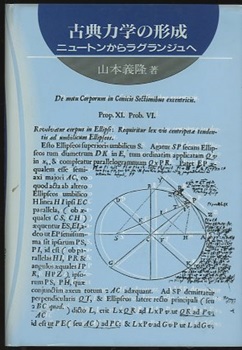 古典力学の形成
ニュートンからラグランジュへ
山本義隆 著
De motu Corporum in Conicis Sectionibus excentricis.
Prop. XI. Prob. VI.
Revolvatur corpus in Ellipsi: Requiritur lex vis centripetæ tenden-
tis ad umbilicum Ellipseos.
Esto Ellipseos superioris umbilicus S. Agatur SP secans Ellip-
seos tum diametrum DK in E, tum ordinatim applicatam Qv
in x, & compleatur parallelogrammum
qualem esse semi-
axi majori AC, eo
quod acta ab altero
Ellipseos umbilico
H linea HI ipsi EC
parallela, (ob æ-
quales CS, CH)
æquentur ES, EI, a-
deo ut EP semisum-
ma sit ipsarum PS,
PI, id est (ob pa-
rallelas HI, PR &
angulos æquales IP
R, HPZ) ipsa-
rum PS, PH, quæ
conjunctim axem totum 2 AC adæquant. Ad SP demittatur
perpendicularis QT, & Ellipseos latere recto principali (seu
2 BC quad.
AC) dicto L, erit L x QR ad L x Pv ut QR ad Pv;
id est ut PE (seu AC) ad PC: & L x Pv ad GvP ut L ad Gv;